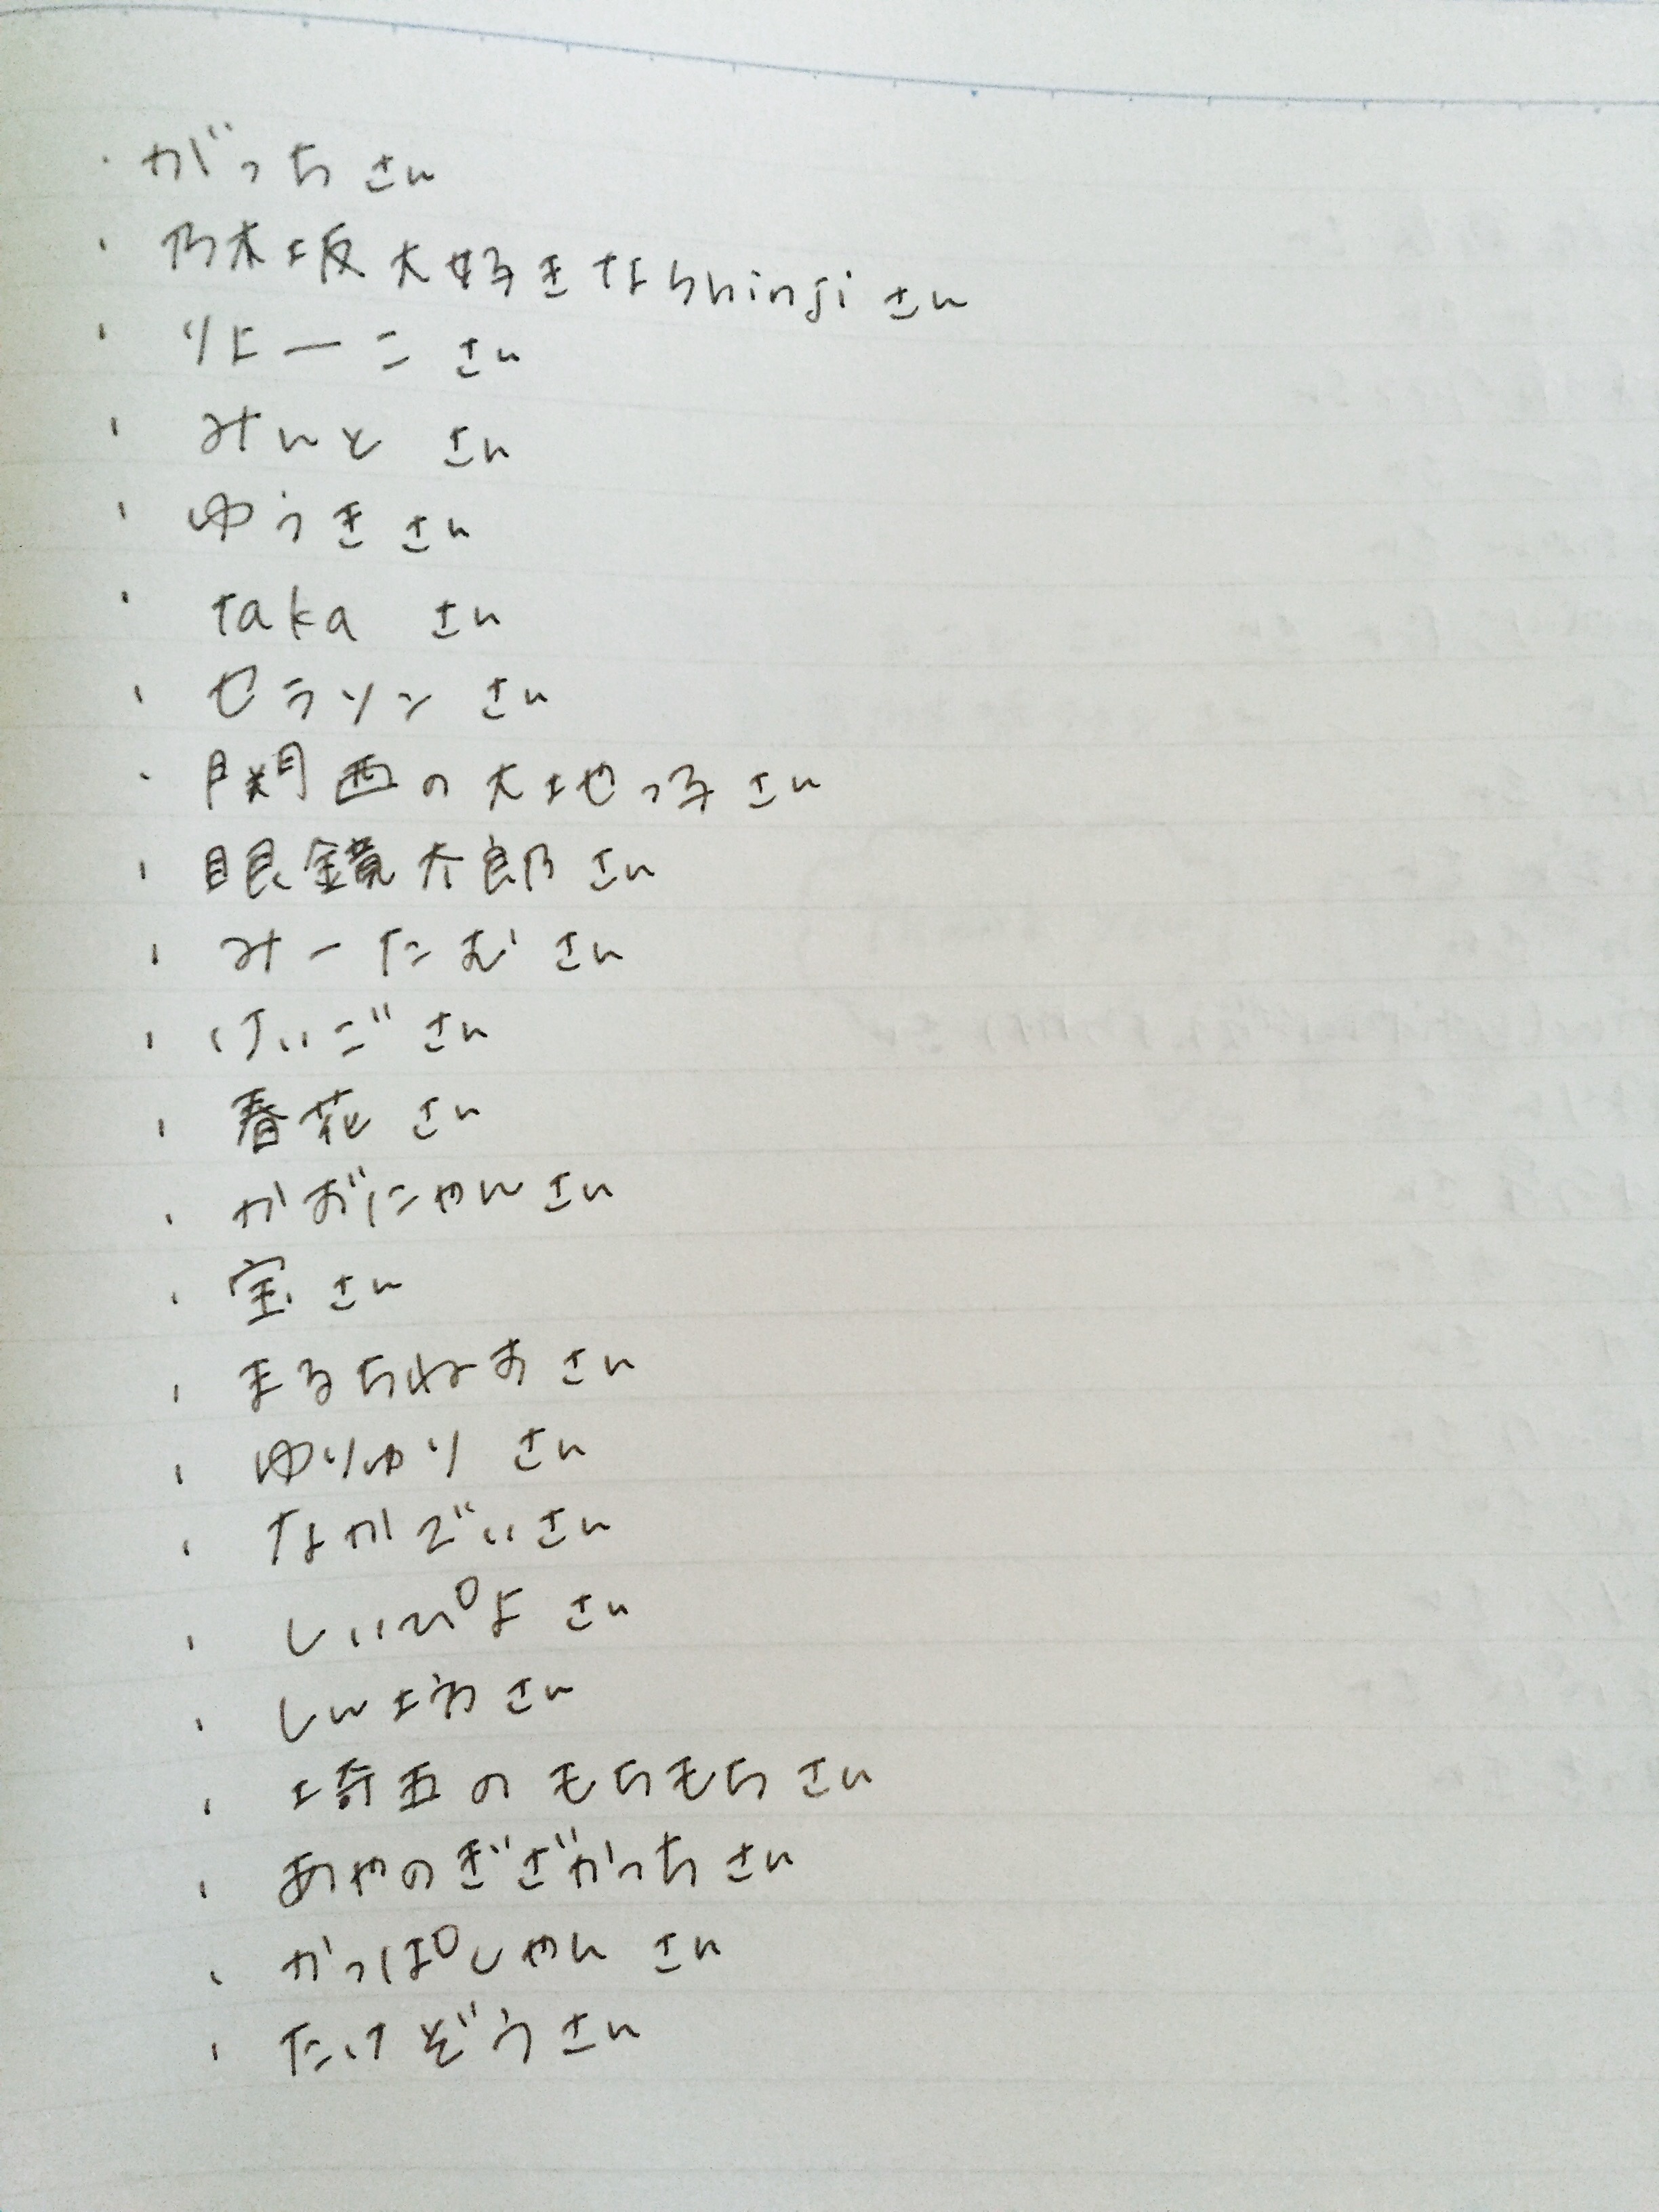 ・がっちさん
・乃木坂大好きなshinjiさん
・りよーこさん
・みんとさん
・ゆうきさん
・takaさん
・セラソンさん
・関西の大地っ子さん
・眼鏡太郎さん
・みーたむさん
・けいごさん
・春花さん
・かおにゃんさん
・宝さん
・まるちねおさん
・ゆりゆりさん
・なかでぃさん
・しいぴよさん
・しんぼうさん
・埼玉のもちもちさん
・あやのぎざかっちさん
・かっぱしゃんさん
・たけぞうさん